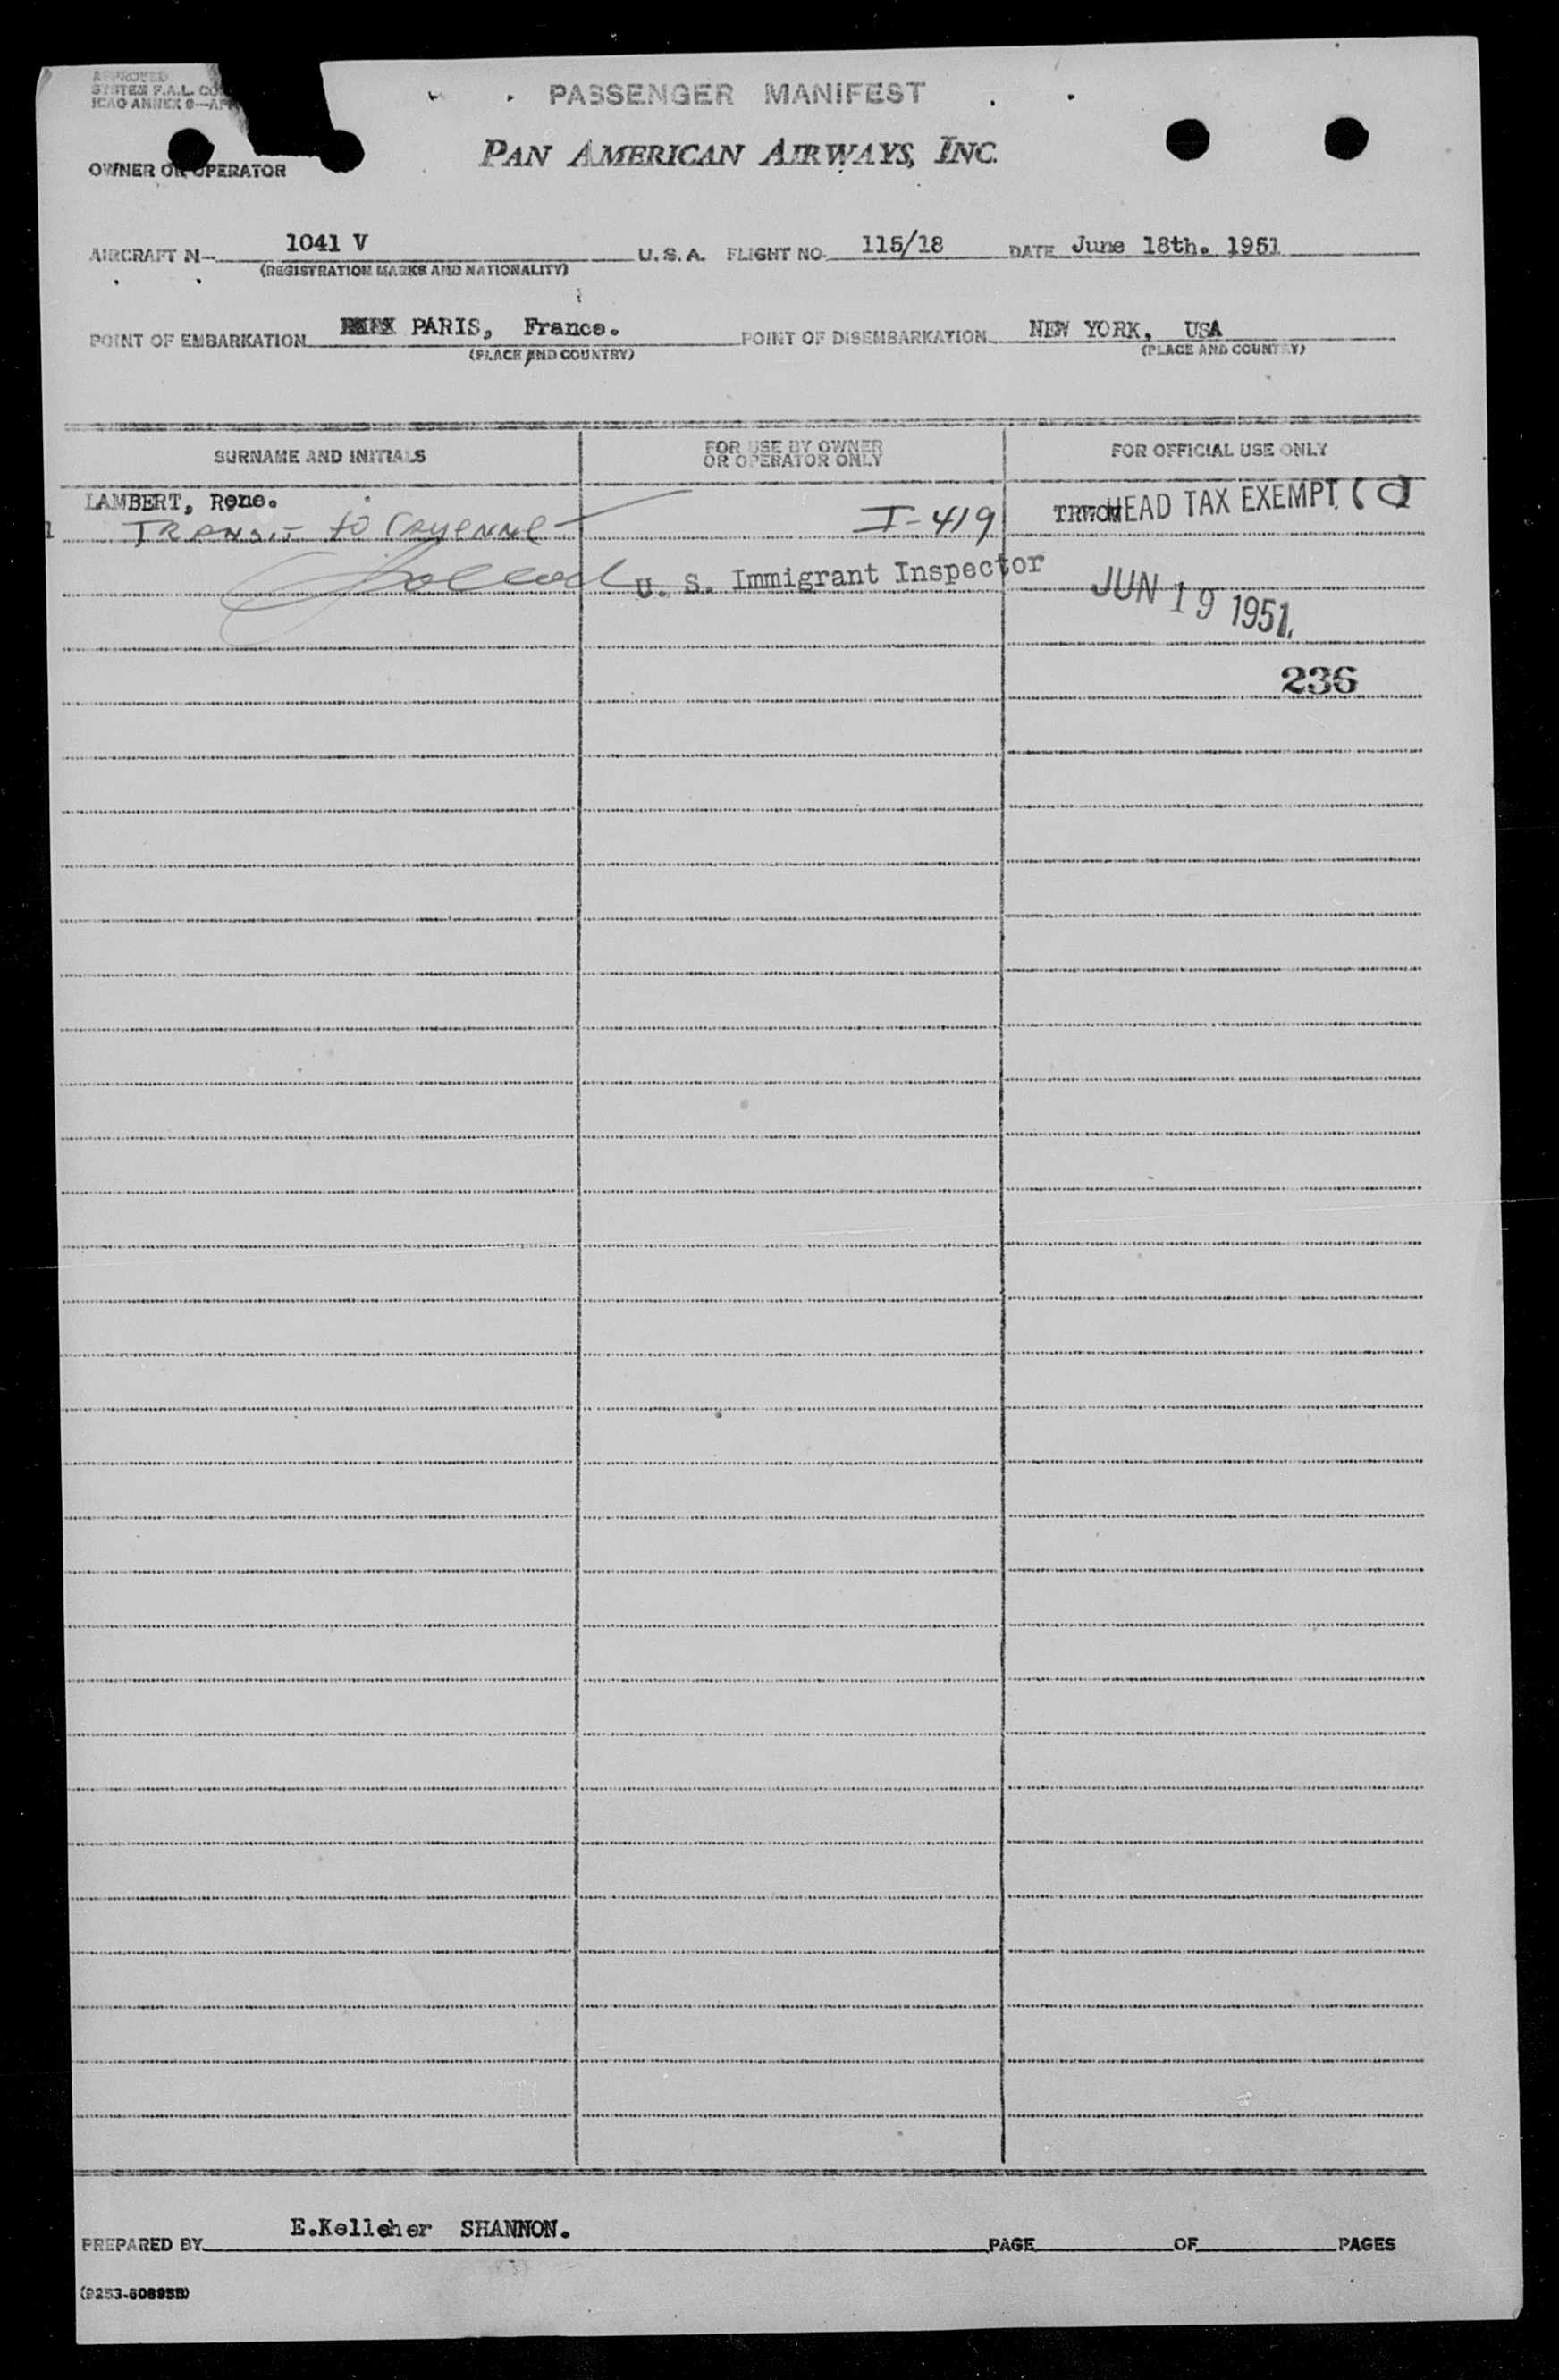 APPROVED
SYSTEM F.A.L. CO
ICAO ANNEX 9—AP
PASSENGER MANIFEST
PAN AMERICAN AIRWAYS, INC.
OWNER OR OPERATOR
AIRCRAFT N— 1041 V U.S.A. FLIGHT NO. 115/18 DATE June 18th. 1951
(REGISTRATION MARKS AND NATIONALITY)
POINT OF EMBARKATION PARIS, France. POINT OF DISEMBARKATION NEW YORK, USA
(PLACE AND COUNTRY) (PLACE AND COUNTRY)
SURNAME AND INITIALS FOR USE BY OWNER OR OPERATOR ONLY FOR OFFICIAL USE ONLY
LAMBERT, Rene.
1 Transit to Cayenne I-419 HEAD TAX EXEMPT
U. S. Immigrant Inspector
JUN 19 1951
236
PREPARED BY E.Kelleher SHANNON. PAGE OF PAGES